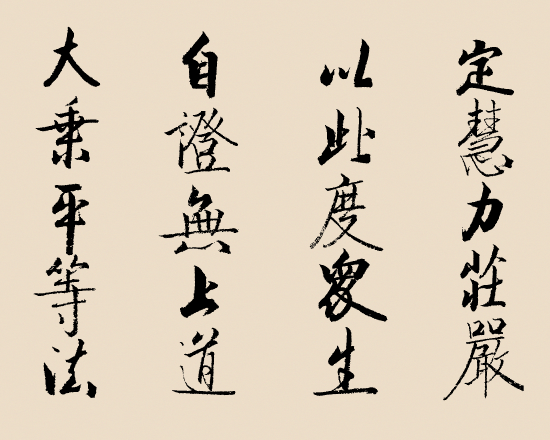 定慧力莊嚴
以此度衆生
自證無上道
大乗平等法